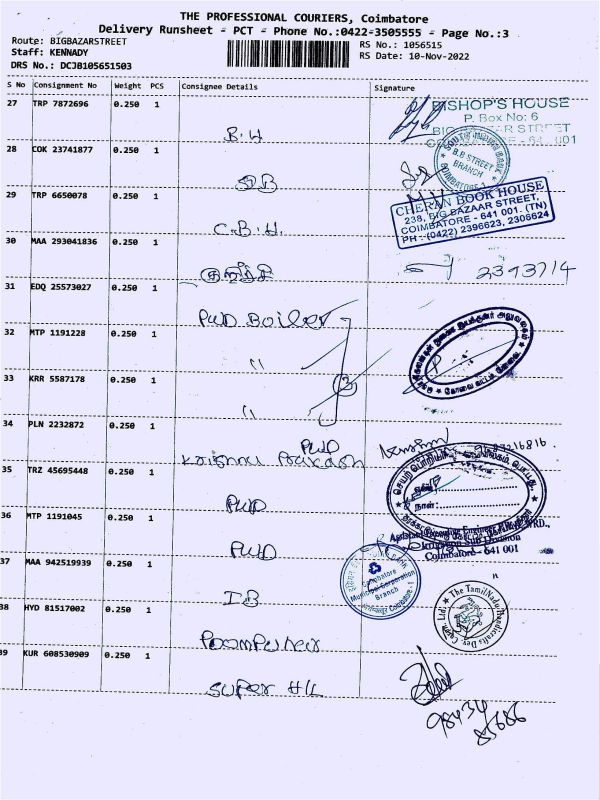 THE PROFESSIONAL COURIERS, Coimbatore
Delivery Runsheet - PCT - Phone No.:0422-3505555 - Page No.:3
Route: BIGBAZARSTREET
Staff: KENNADY
DRS No.: DCJB105651503
RS No.: 1056515
RS Date: 10-Nov-2022
S No Consignment No Weight PCS Consignee Details Signature
27 TRP 7872696 0.250 1
B.H
BISHOP'S HOUSE
P. Box No: 6
BIG BAZAAR STREET
COIMBATORE - 641 001
28 COK 23741877 0.250 1
SIB
B.B STREET
BRANCH
COIMBATORE-1
29 TRP 6650078 0.250 1
C.B.H.
CHERAN BOOK HOUSE
238, BIG BAZAAR STREET,
COIMBATORE - 641 001. (TN)
PH : (0422) 2396623, 2306624
30 MAA 293041836 0.250 1
2393714
31 EDQ 25573027 0.250 1
PWD Boiler
32 MTP 1191228 0.250 1
"
33 KRR 5587178 0.250 1
"
34 PLN 2232872 0.250 1
PWD
35 TRZ 45695448 0.250 1
PWD
நாள்:
36 MTP 1191045 0.250 1
PWD
Coimbatore - 641 001
37 MAA 942519939 0.250 1
IB
Coimbatore
Municipal Corporation
Branch
38 HYD 81517002 0.250 1
Poompuhar
The Tamil Nadu Handicrafts Dev. Corpn. Ltd.
39 KUR 608530909 0.250 1
Super H/L
98434
85686